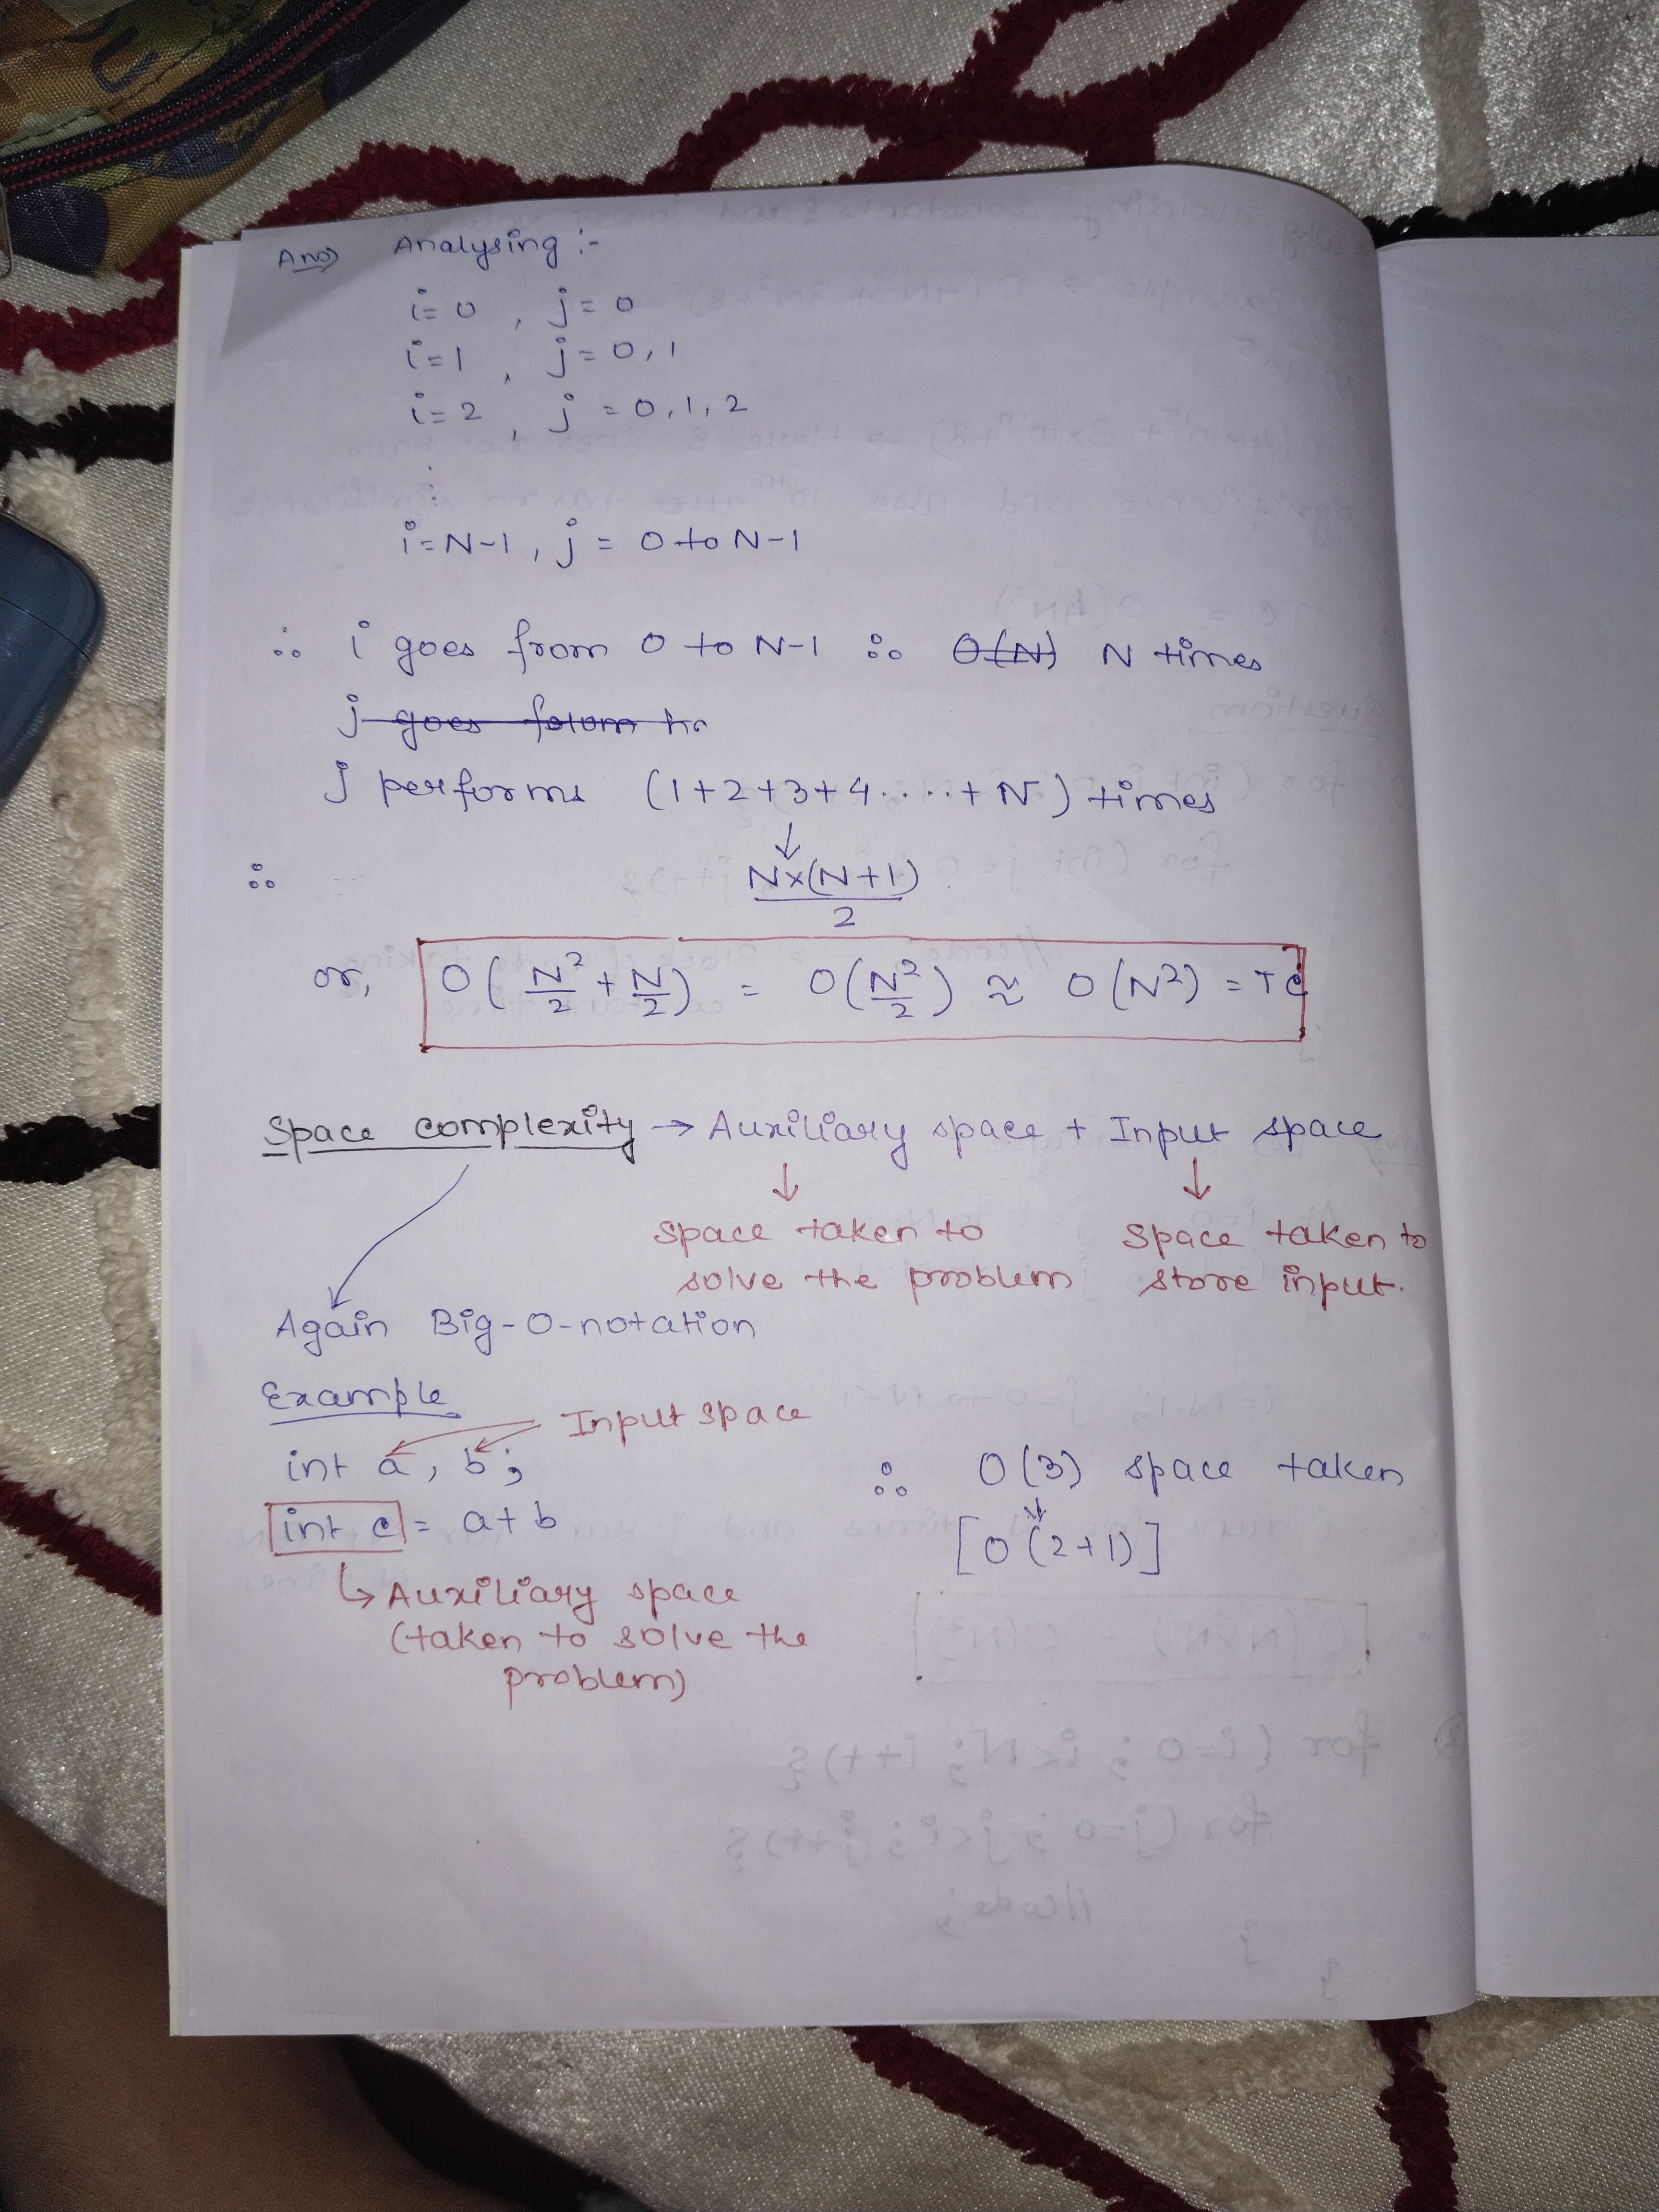 Ans) Analysing :-
i= 0 , j= 0
i=1 , j= 0, 1
i= 2 , j = 0, 1, 2
:
i=N-1, j = 0 to N-1
∴ i goes from 0 to N-1 ∴ O(N) N times
j goes
j performs (1+2+3+4.....+N) times
↓
∴ N×(N+1)
2
or, O( N²/2 + N/2 ) = O( N²/2 ) ≈ O(N²) = TC
Space complexity → Auxiliary space + Input space
↓ ↓
Space taken to solve the problem
Space taken to store input.
Again Big-O-notation
Example
Input space
int a, b;
∴ O(3) space taken
int c = a+b
[O(2+1)]
↳ Auxiliary space
(taken to solve the
problem)